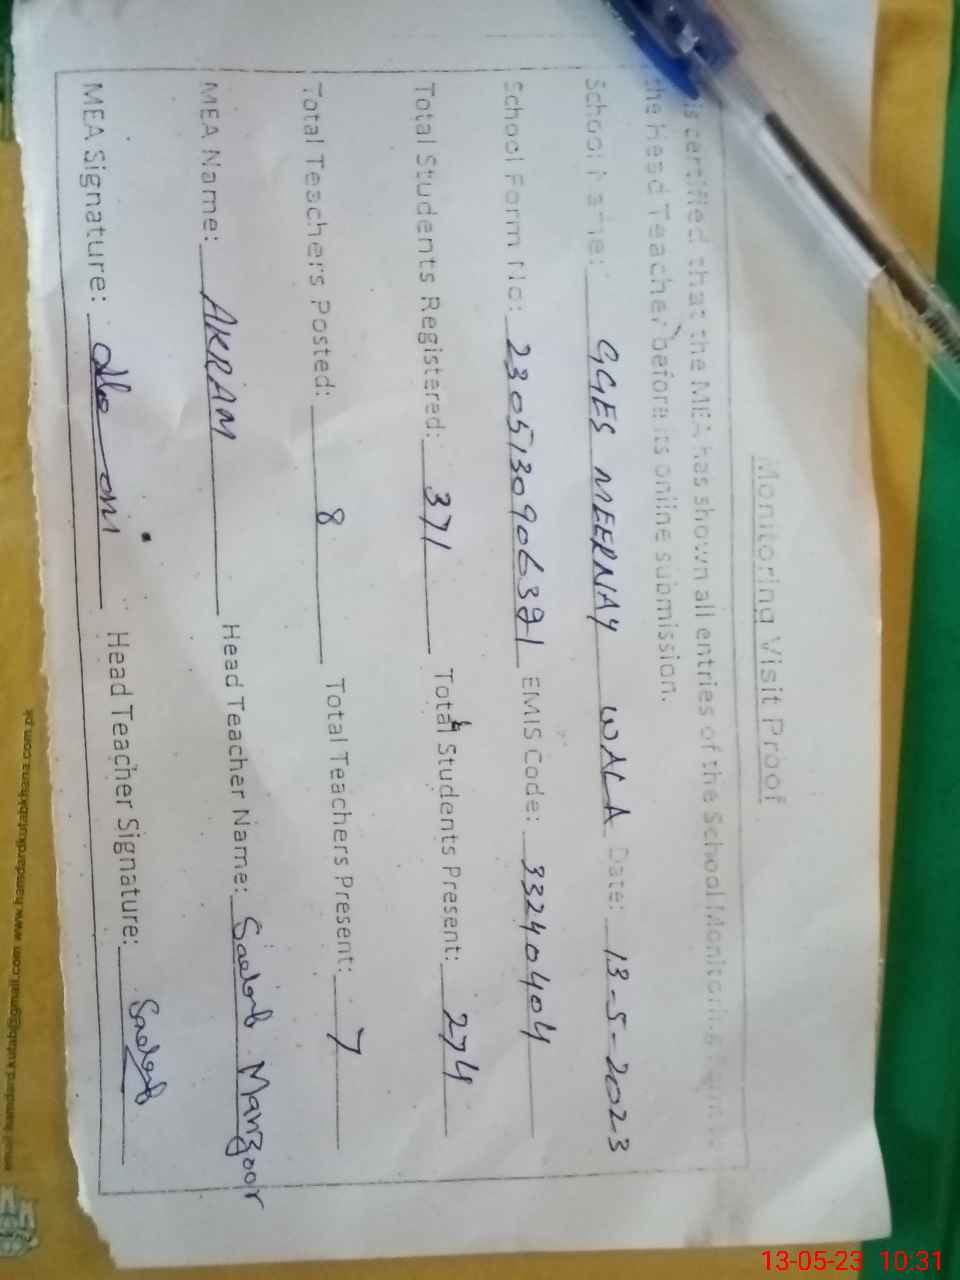 Monitoring Visit Proof
is certified that the MEA has shown all entries of the School Monitoring
the Head Teacher before its online submission.
School Name: GGES MEERNAY WALA Date: 13-5-2023
School Form No: 2305130906391 EMIS Code: 33240404
Total Students Registered: 371 Total Students Present: 274
Total Teachers Posted: 8 Total Teachers Present: 7
MEA Name: AKRAM Head Teacher Name: Manzoor
MEA Signature: Head Teacher Signature:
email:hamdard.kutab@gmail.com www.hamdardkutabkhana.com.pk
13-05-23 10:31